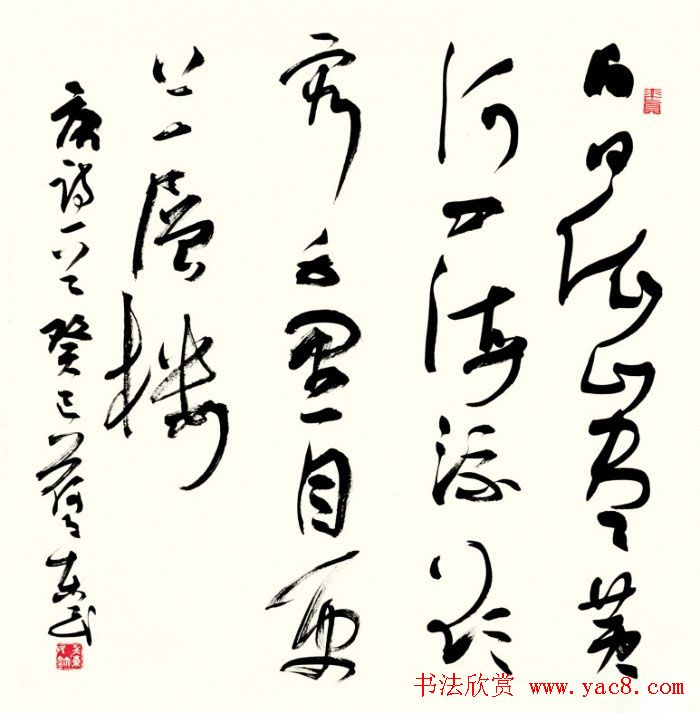 白日依山盡黃
河入海流欲
窮千里目更
上一層樓
唐詩一首癸巳荷月
书法欣赏 www.yac8.com